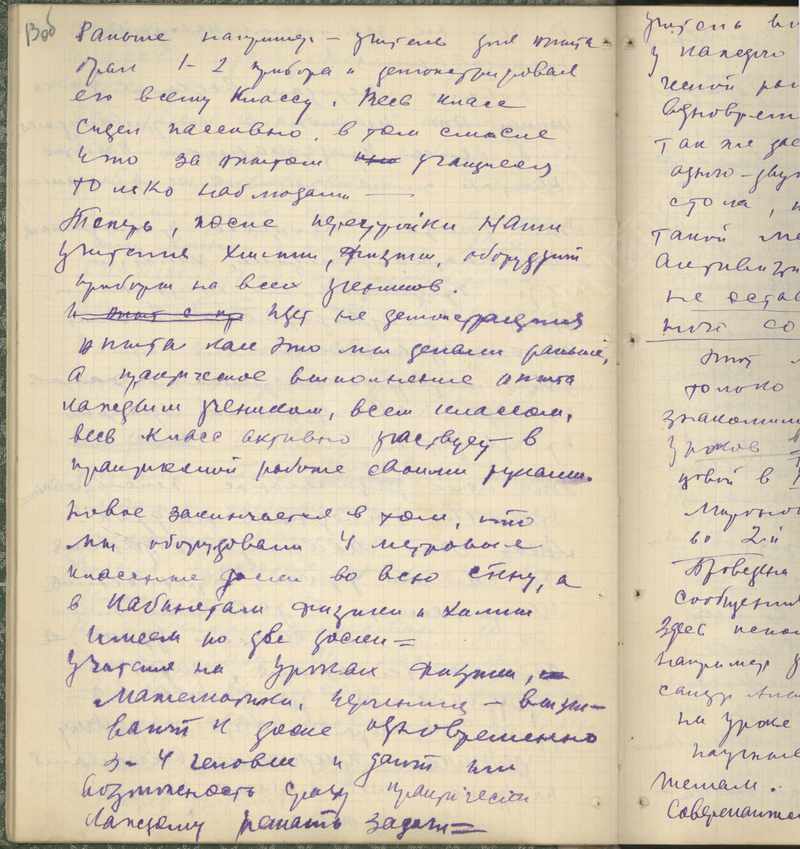 Раньше например – учитель для опыта
брал 1-2 прибора и демонстрировал
его всему классу. Весь класс
сидел пассивно, в том смысле
что за опытом учащиеся
только наблюдали —
Теперь, после перестройки наши
учителя химии, физики, оборудуют
приборы на всех учеников.
И идет не демонстрация
опыта как это мы делали раньше,
а практическое выполнение опыта
каждым учеником, всем классом,
весь класс активно участвует в
практической работе своими руками.
Новое заключается в том, что
мы оборудовали 4 метровые
классные доски во всю стену, а
в кабинетах физики и химии
имеем по две доски =
Учителя на уроках физики,
математики, черчения – вызы-
вают к доске одновременно
3-4 человека и дают им
возможность сразу практически
каждому решать задачи =
учитель
у каждо
ческой
одновремен
так же
одно-двух
стола,
такой
Активиз
не остав
ной со
Этот
только
знакомим
уроков
цовой в
во 2-й
Проведена
сообщения
Здесь
например
сандр
на уроке
научные
темам.